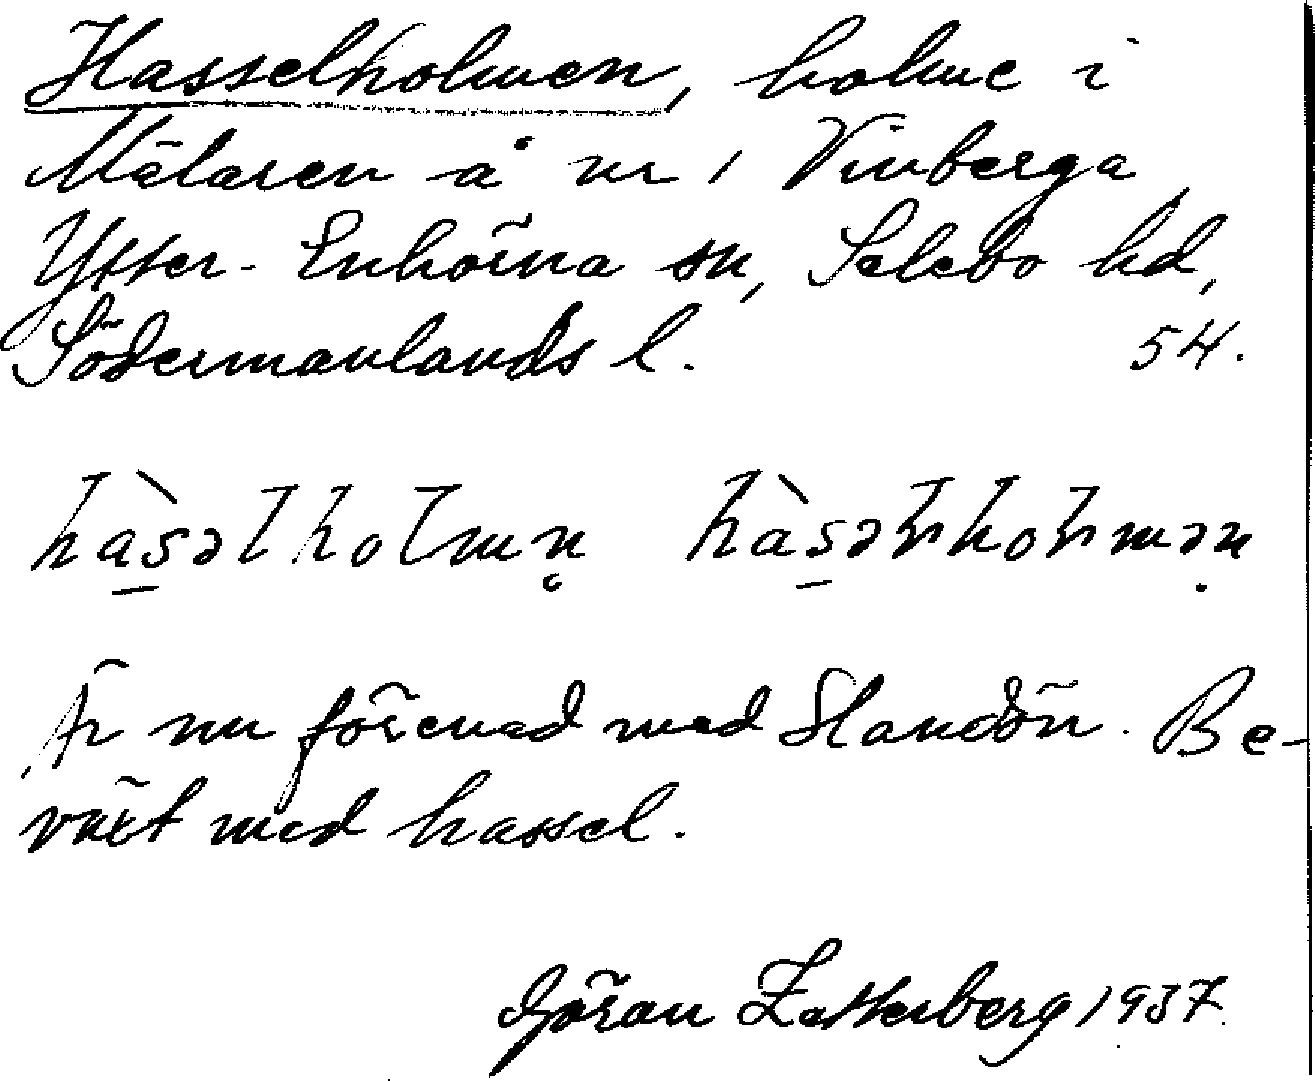 Hasselholmen, holme i
Mälaren å nr 1 Vinberga
Ytter-Enhörna sn, Selebo hd,
Södermanlands l. 54.
hàsəlholmn̥ hàsəlholmən
Är nu förenad med Slandön. Be-
växt med hassel.
Göran Zetterberg 1937.